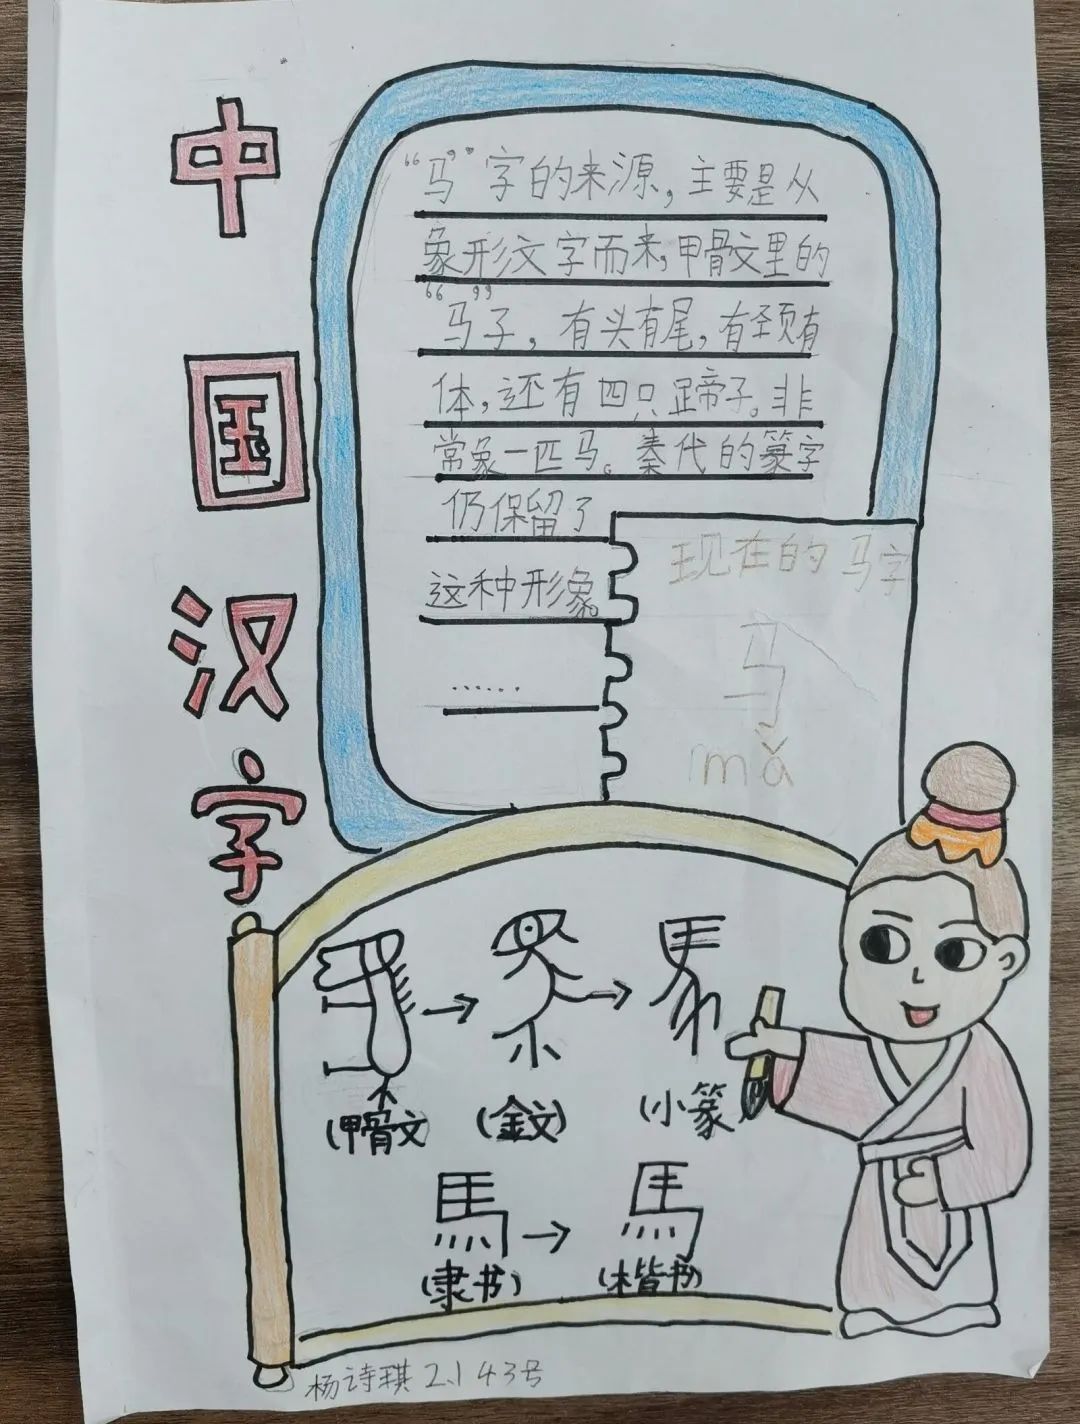 中国汉字
“马”字的来源，主要是从
象形文字而来，甲骨文里的
“马”子，有头有尾，有颈有
体，还有四只蹄子。非
常象一匹马。秦代的篆字
仍保留了
这种形象。
……
现在的马字
马
mǎ
→ → 馬
(甲骨文) (金文) (小篆)
馬 → 馬
(隶书) (楷书)
杨诗琪 2.1 43号